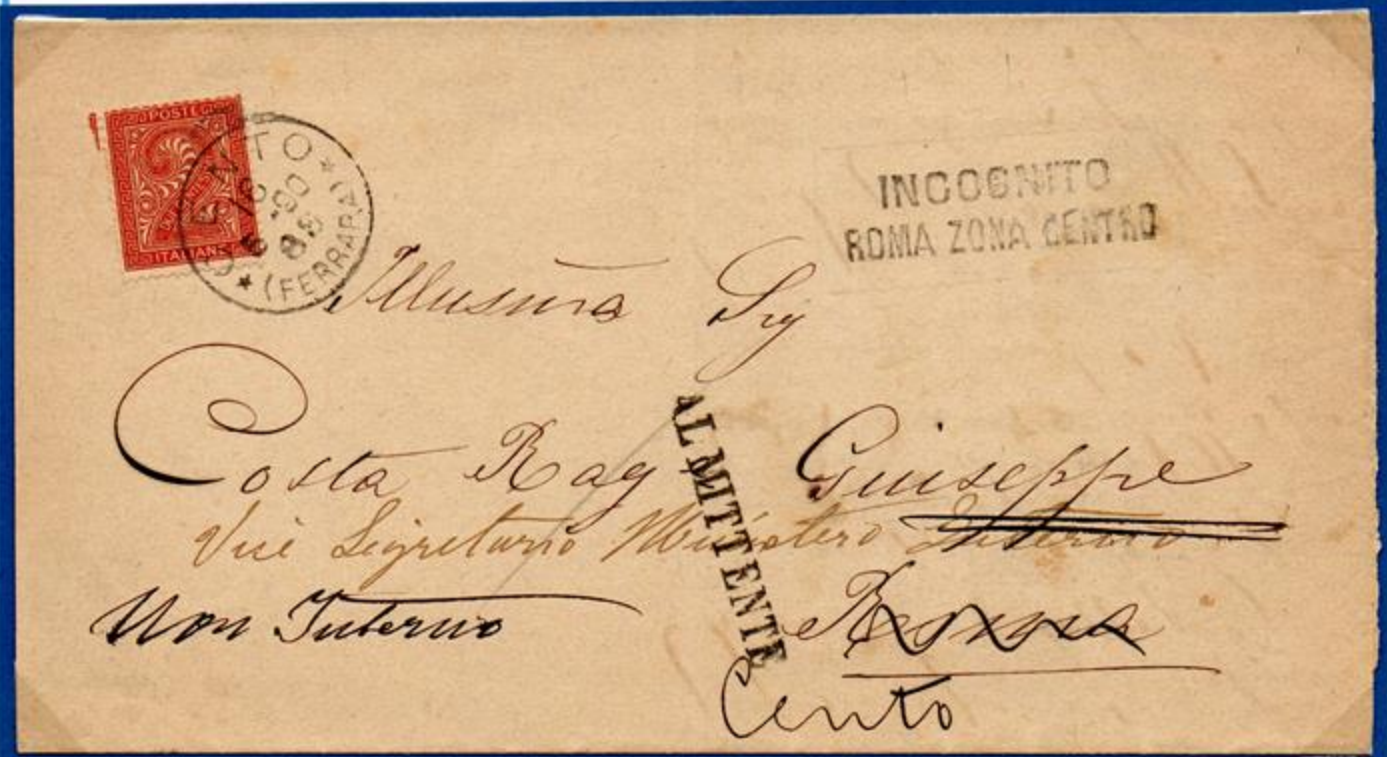 POSTE
ITALIANE
CENTO
(FERRARA)
INCOGNITO
ROMA ZONA CENTRO
Sig
Costa Rag Giuseppe
Vice Segretario Ministero Interno
Non Interno
Roma
Cento
AL MITTENTE